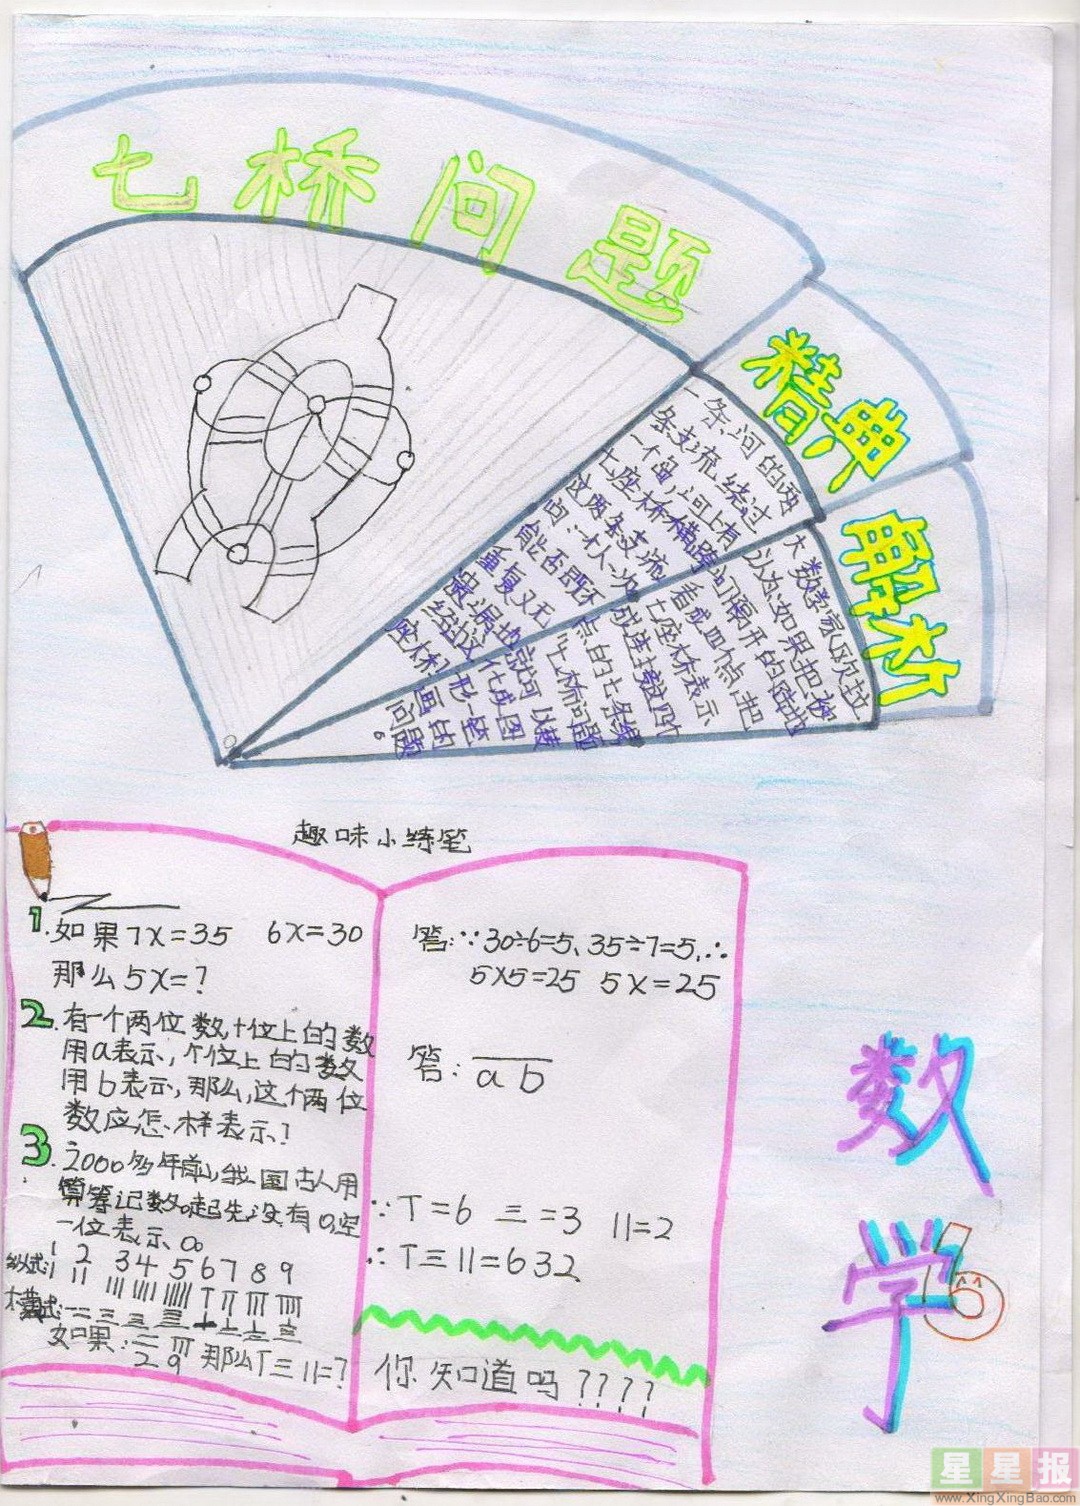 七桥问题
精典
解析
一条河的两
条支流绕过
一个岛,河上有
七座桥横跨
这两条支流
问:一个人一次
能否既不
重复又无
遗漏地
经过这
座桥
大数学家欧拉
认为:如果把被
河隔开的陆地
看成四个点,把
七座桥表示
成连接这四
点的七条线
"七桥问题
就可以转
化成图
形一笔
画的
问题。
趣味小练笔
1.如果7X=35 6X=30
那么5X=?
2.有一个两位数,十位上的数
用a表示,个位上的数
用b表示,那么,这个两位
数应怎样表示?
3.2000多年前,我国古人用
算筹记数。起先没有0,空
一位表示0。
1 2 3 4 5 6 7 8 9
纵式:
横式:
如果:二 |||
2 9 那么T三||=?
答:∵30÷6=5、35÷7=5,∴
5×5=25 5X=25
答:ab
∵T=6 三=3 ||=2
∴T三||=632
你知道吗????
数
学
6
星星报
www.XingXingBao.com